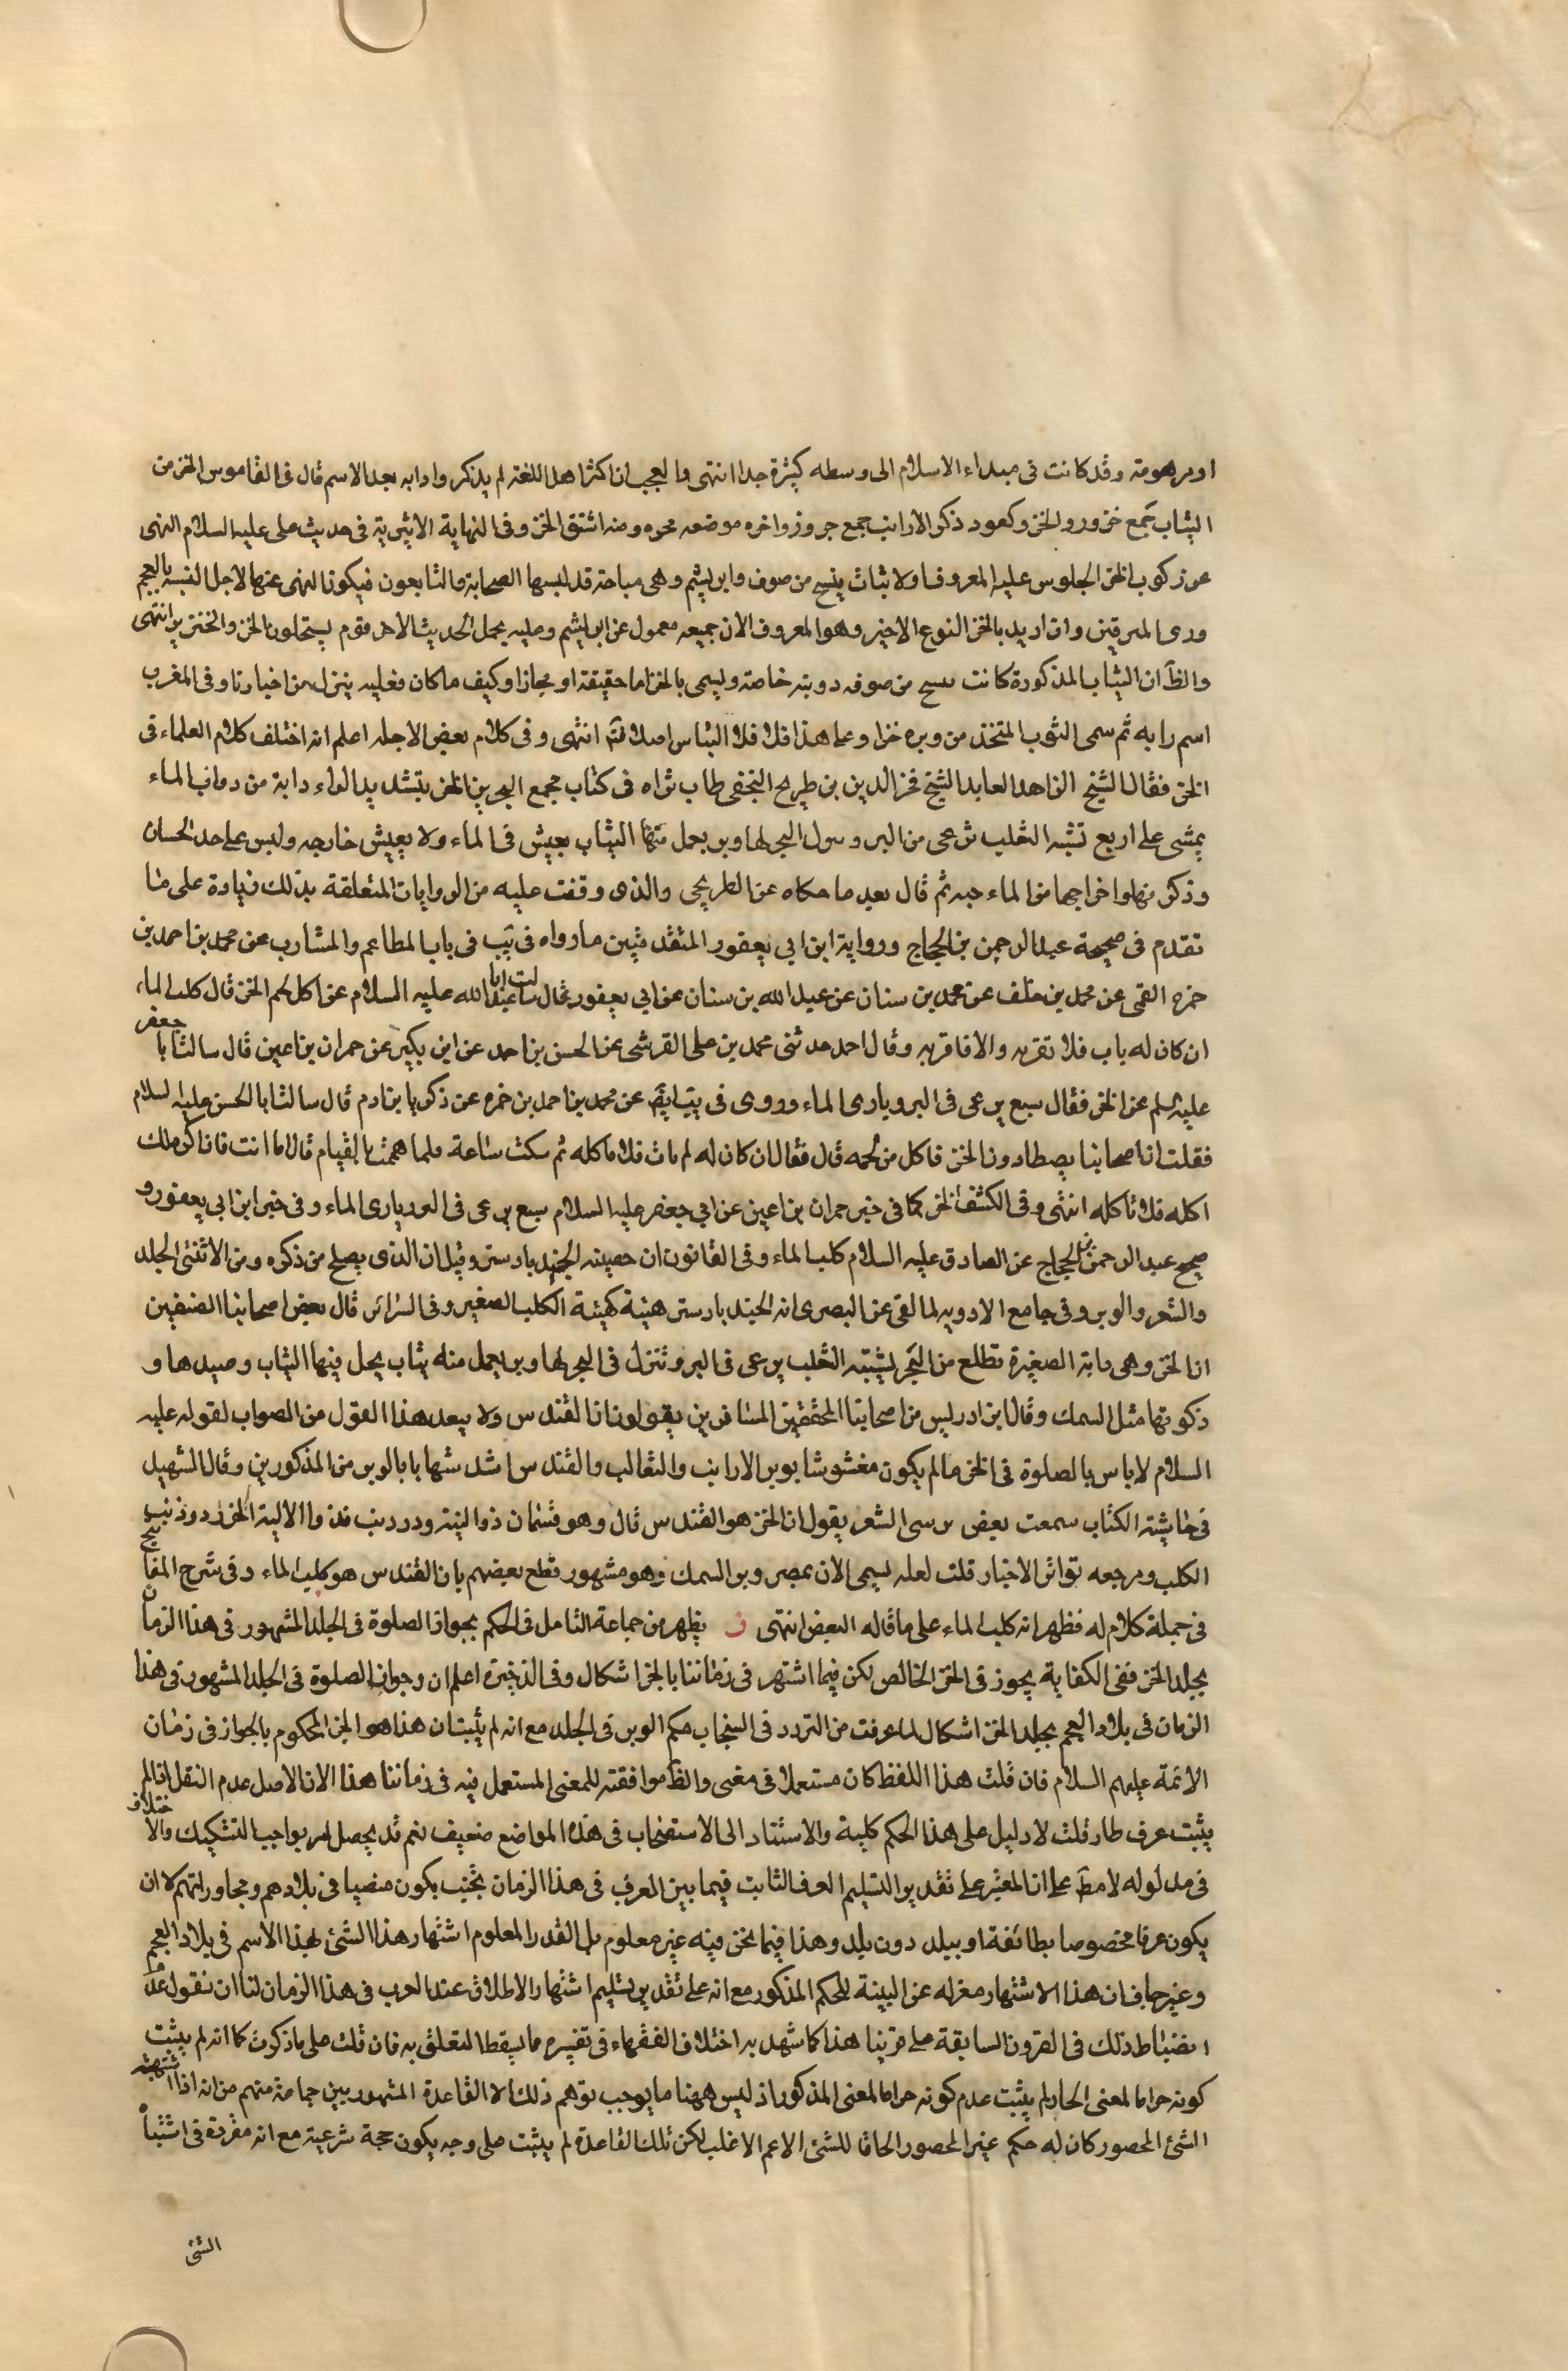 او مرهومة وقد كانت فى مبداء الاسلام الى وسطه كثيرة جدا انتهى والعجب ان اكثر اهل اللغة لم يذكروا دابه بعد الاسم قال فى القاموس الخز من
الثياب جمع خزور والخز وكعود ذكر الارانب جمع خزوز واخره موضعه محره ومنه اشتق الخز وفى النهاية الاثيرية فى حديث على عليه السلام النهى
عن ركوب الخز الجلوس عليه المعروف اولا ثياب ينسج من صوف وابريشم وهى مباحة قد لبسها الصحابة والتابعون فيكون النهى عنها لاجل التشبه بالعجم
وزى المترفين وان اريد بالخز النوع الاخير وهو المعروف الان جميعه معمول عن ابريشم وعليه يحمل الحديث الاخر قوم يستحلون الخز والخنزير انتهى
والظ ان الثياب المذكورة كانت ىىسج من صوفه دويبة خاصة ويسمى بالخز اما حقيقة او مجازا وكيف ما كان فعليه ينزل من اخبارنا وفى المغرب
اسم رابه ثم سمى الثوب المتخذ من وبره خزا وعلى هذا فلا فلا التباس اصلا فتم انتهى وفى كلام بعض الاجله اعلم انه اختلف كلام العلماء فى
الخز فقال الشيخ الزاهد العابد الشيخ فخر الدين بن طريح النجفى طاب ثراه فى كتاب مجمع البحرين الخز بتشديد الزاء دابة من دواب الماء
يمشى على اربع تشبه الثعلب ترعى من البر و ىىىول البحر لها وبر يعمل منها الثياب يعيش فى الماء ولا يعيش خارجه وليس على حد الحيتان
وذكر نهلوا خراجها من الماء حيه ثم قال بعد ما حكاه عن الطريحى والذى وقفت عليه من الروايات المتعلقة بذلك زيادة على ما
تقدم فى صحيحة عبد الرحمن بن الحجاج ورواية ابن ابى يعفور المتقدمتين ما رواه فى يب فى باب المطاعم والمشارب عن محمد بن احمد بن
حمزه القمى عن محمد بن خلف عن محمد بن سنان عن عبد الله بن سنان عن ابى يعفور قال سالت ابا عبد الله عليه السلام عن اكل لحم الخز قال كلب الماء
ان كان له ناب فلا تقربه والا فاقربه وقال احمد حدثنى محمد بن على القرشى عن الحسن بن احمد عن ابن بكير عن حمران بن اعين قال سالت ابا جعفر
عليه السلم عن الخز فقال سبع يرعى فى البر وياوى الماء وروى فى يب ايضا عن محمد بن احمد بن حمزه عن ذكريا بن ادم قال سالت ابا الحسن عليه السلام
فقلت ان اصحابنا يصطادون الخز فاكل من لحمه قال فقال ان كان له ناب فلا تاكله ثم سكت ساعة فلما هممت بالقيام قال اما انت فانا اكره لك
اكله فلا تاكله انتهى وفى الكشف الخز كما فى خبر حمران بن اعين عن ابى جعفر عليه السلام سبع يرعى فى البر وياوى الماء وفى خبر ابن ابى يعفور و
صحيح عبد الرحمن بن الحجاج عن الصادق عليه السلام كلب الماء وفى القانون ان خصيته الجند بادستر وقيل ان الذى يصلح من ذكره ومن الانثى الجلد
والشعر والوبر وفى جامع الادويه لمالقى عن البصرى انه الجند بادستر هيئة كهيئة الكلب الصغير وفى السرائر قال بعض اصحابنا المصنفين
ان الخز وهى دابة الصغيرة تطلع من البحر يشبه الثعلب يرعى فى البر وتنزل فى البحر لها وبر يعمل منه ثياب يحل فيها الثياب وصيدها و
ذكوتها مثل السمك وقال ابن ادريس من اصحابنا المحققين المسافرين يقولون انا القندس ولا يبعد هذا القول من الصواب لقوله عليه
السلام لا باس بالصلوة فى الخز ما لم يكون مغشوشا بوبر الارانب والثعالب والقندس اشد شبها بالوبر من المذكورين وقال الشهيد
فى حاشية الكتاب سمعت بعض مدرسى الشعر يقول ان الخز هو القندس قال وهو قسمان ذو اليته وذو ذنب فذوا الالية الخز وذو ذنب
الكلب ومرجعه تواتر الاخبار قلت لعله ليسمى الان بمصر وبر السمك وهو مشهور قطع بعضهم بان القندس هو كلب الماء وفى شرح المفاتيح
فى جملة كلام له فظهر انه كلب الماء على ما قاله البعض انتهى ن يظهر من جماعة التامل فى الحكم بجواز الصلوة فى الجلد المشهور فى هذا الزمان
بجلد الخز ففى الكفاية يجوز فى الخز الخالص لكن فيما اشتهر فى زماننا بالخز اشكال وفى الذخيرة اعلم ان وجواز الصلوة فى الجلد المشهور فى هذا
الزمان فى بلاد العجم بجلد الخز اشكال لما عرفت من التردد فى السنجاب حكم الوبر فى الجلد مع انه لم يثبت ان هذا هو الخز المحكوم بالجواز فى زمان
الائمة عليهم السلام فان قلت هذا اللفظ كان مستعملا فى معنى والظ موافقته للمعنى المستعمل فيه فى زماننا هذا الا ان الاصل عدم النقل اذا لم
يثبت عرف طار قلت لا دليل على هذا الحكم كلية والاستناد الى الاستصحاب فى هذه المواضع ضعيف نعم قد يحصل امر يواجب التشكيك والاختلاف
فى مدلوله لا مط على ان المعتبر على تقدير التسليم العرف الثابت فيما بين العرب فى هذا الزمان بحيث يكون منضبا فى بلادهم ومحاوراتهم لا ان
يكون عرفا مخصوصا بطائفة او ببلد دون بلد وهذا فيما نحن فيه غير معلوم بل القدر المعلوم اشتهار هذا الشئ بهذا الاسم فى بلاد العجم
وغيرها فان هذا الاشتهار معزله عن البينة للحكم المذكور مع انه على تقدير تسليم اشتهار الاطلاق عند العرب فى هذا الزمان لنا ان نقول عدم
انضباط ذلك فى القرون السابقة على قرننا هذا كما شهد به اختلاف الفقهاء فى تفسيره مما يسقط التعلق به فان قلت على ما ذكرت كما انه لم يثبت
كونه حراما لمعنى الحادم يثبت عدم كونه حراما لمعنى المذكور اذ ليس ههنا ما يوجب توهم ذلك الا القاعدة المشهور بين جماعة منهم من انه اذا اشتبه
الشئ المحصور كان له حكم غير المحصور الحاقا للشئ الاعم الاغلب لكن تلك القاعدة لم يثبت على وجه يكون حجة شرعية مع انه مفردة فى اشتباه
الشئ